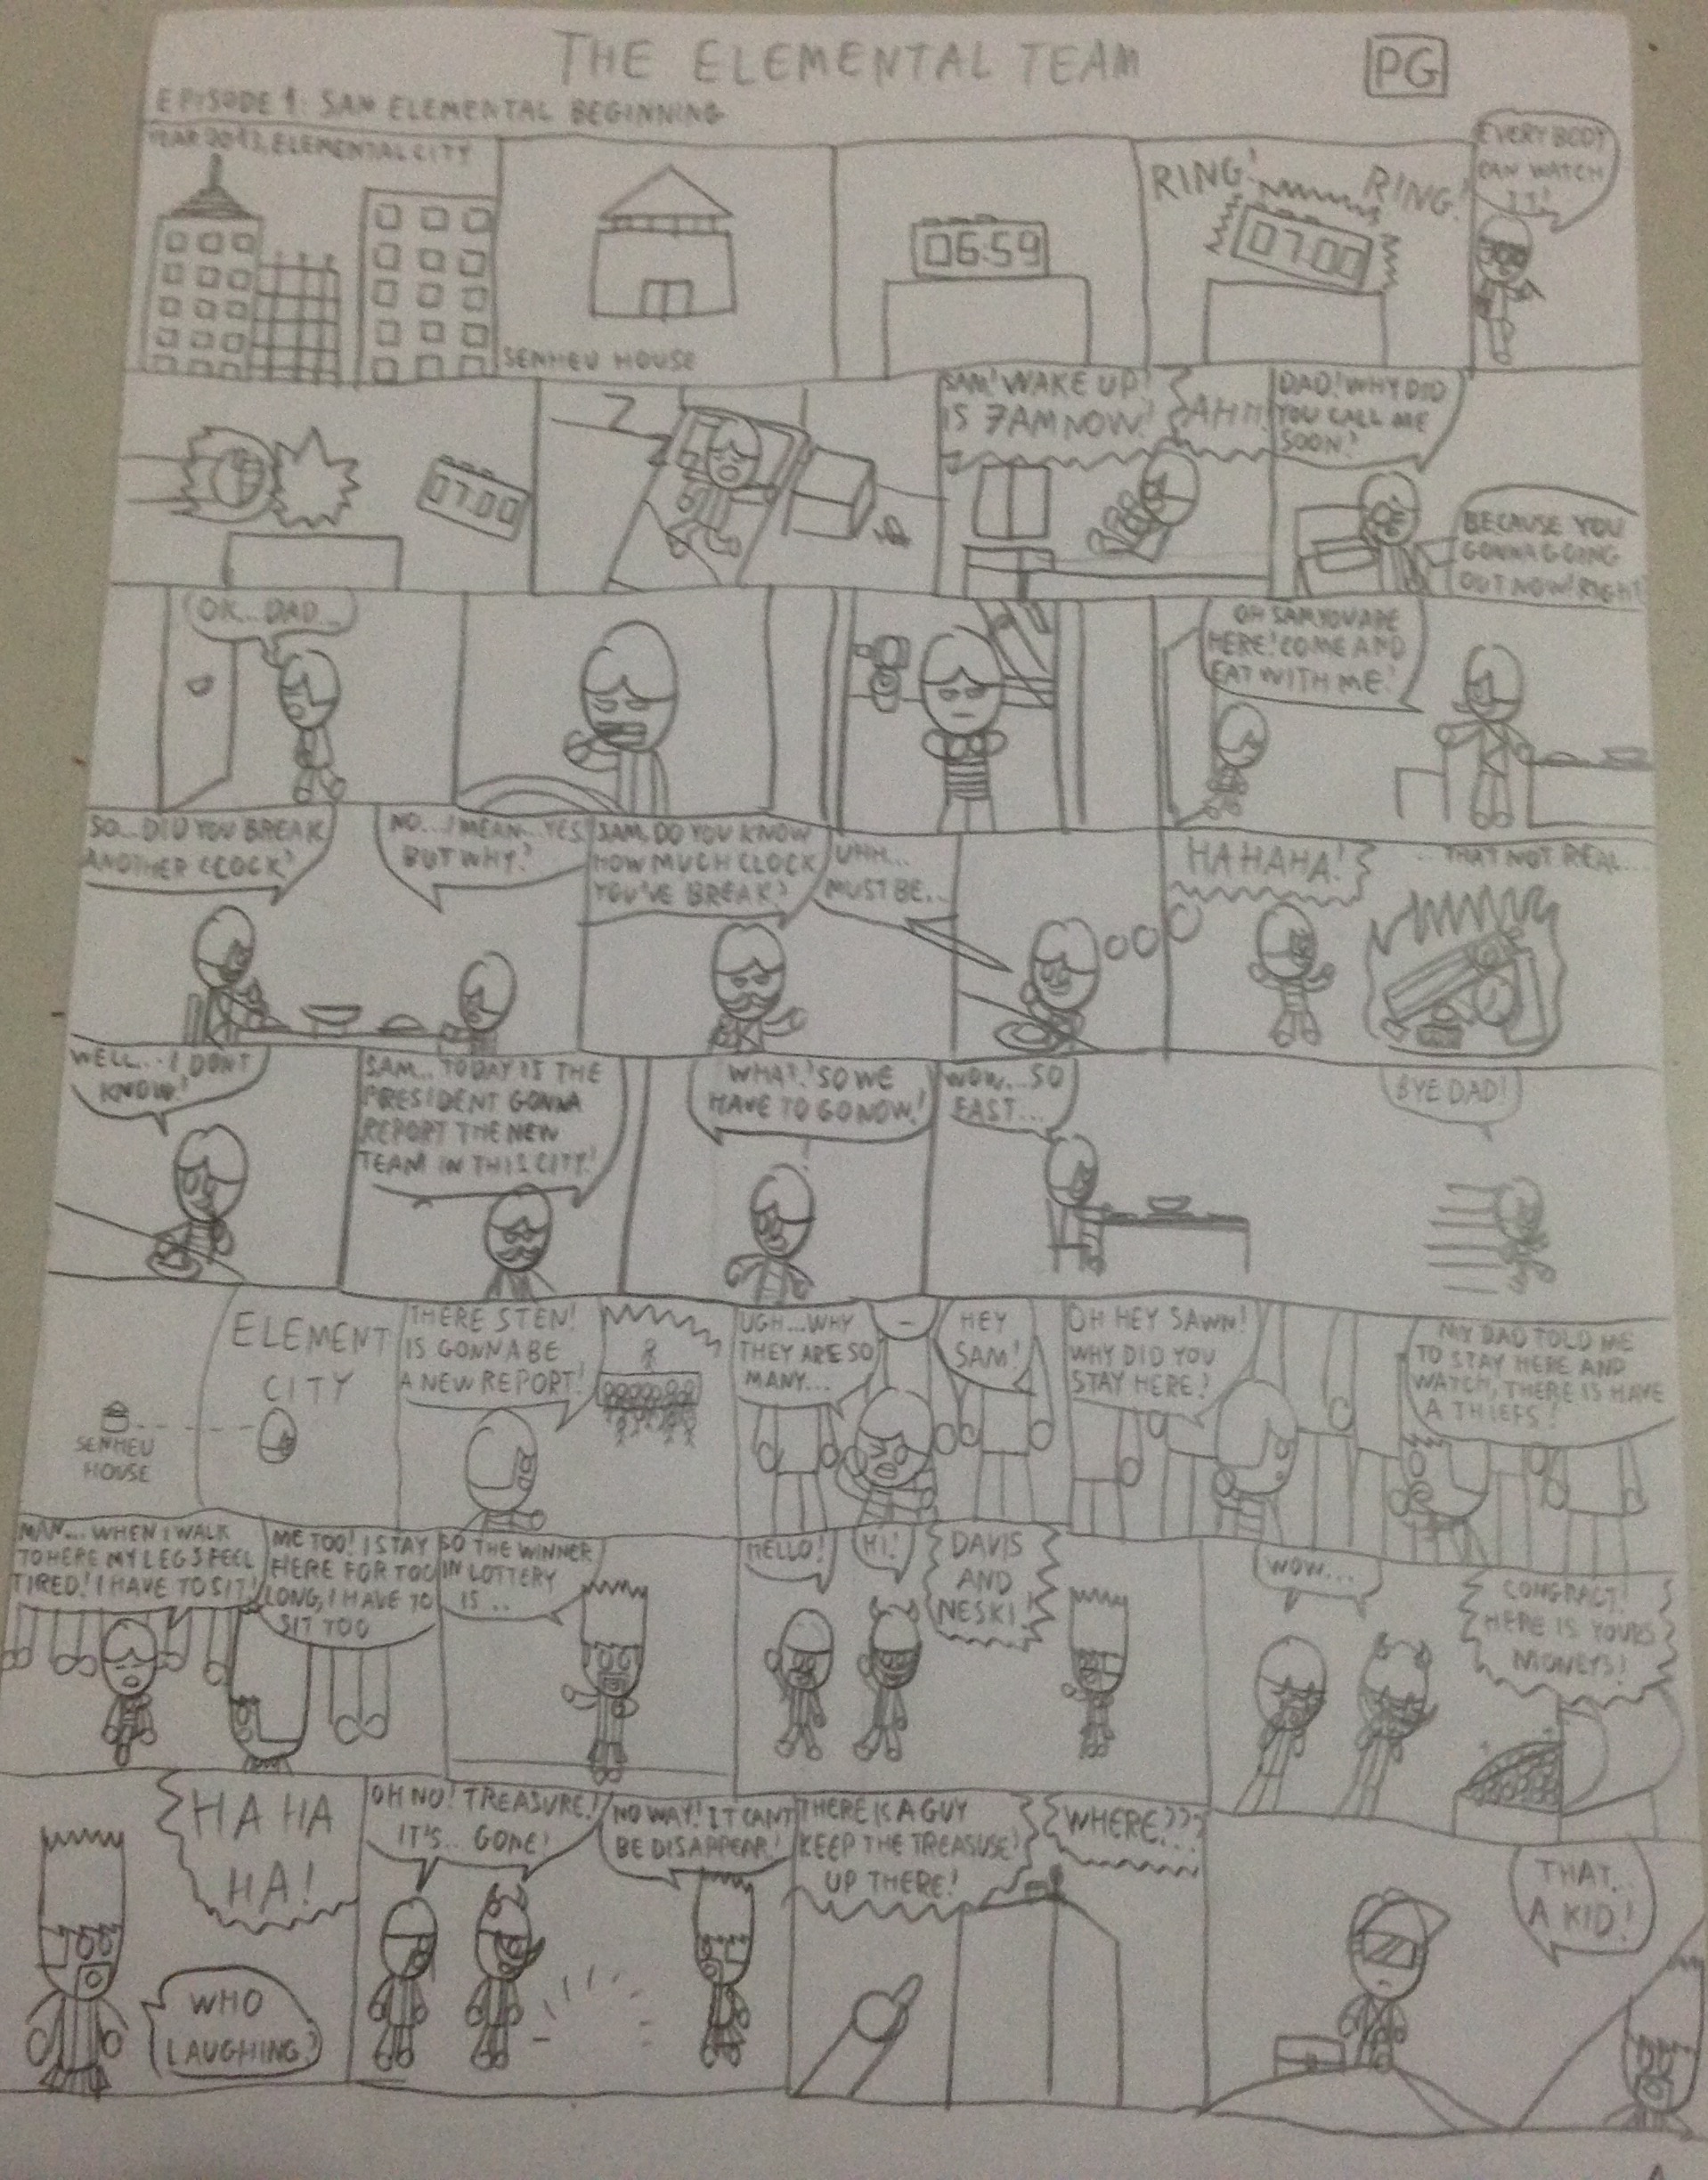 THE ELEMENTAL TEAM
PG
EPISODE 1: SAM ELEMENTAL BEGINNING
YEAR 2013, ELEMENTAL CITY
SENHEU HOUSE
06:59
RING!
RING!
07:00
EVERYBODY
CAN WATCH
IT!
07:00
Z
Z
SAM! WAKE UP!
IS 7AM NOW!
AHH!
DAD! WHY DID
YOU CALL ME
SOON?
BECAUSE YOU
GONNA GOING
OUT NOW! RIGHT
OK... DAD...
OH SAM YOU ARE
HERE! COME AND
EAT WITH ME!
SO... DID YOU BREAK
ANOTHER CLOCK?
NO... I MEAN... YES
BUT WHY?
SAM, DO YOU KNOW
HOW MUCH CLOCK
YOU'VE BREAK?
UHH...
MUST BE...
HA HAHA!
...THAT NOT REAL...
WELL... I DONT
KNOW!
SAM... TODAY IS THE
PRESIDENT GONNA
REPORT THE NEW
TEAM IN THIS CITY!
WHAT? SO WE
HAVE TO GO NOW!
WOW... SO
FAST...
BYE DAD!
SENHEU
HOUSE
ELEMENT
CITY
THERE STEN!
IS GONNA BE
A NEW REPORT!
UGH... WHY
THEY ARE SO
MANY...
HEY
SAM!
OH HEY SAWN!
WHY DID YOU
STAY HERE?
MY DAD TOLD ME
TO STAY HERE AND
WATCH, THERE IS HAVE
A THIEFS!
MAN... WHEN I WALK
TO HERE MY LEGS FEEL
TIRED! I HAVE TO SIT!
ME TOO! I STAY
HERE FOR TOO
LONG, I HAVE TO
SIT TOO
SO THE WINNER
IN LOTTERY
IS..
HELLO!
HI!
DAVIS
AND
NESKI!
WOW...
CONGRACT!
HERE IS YOURS
MONEYS!
HA HA
HA!
WHO
LAUGHING?
OH NO! TREASURE!
IT'S.. GONE!
NO WAY! IT CANT
BE DISAPPEAR!
THERE IS A GUY
KEEP THE TREASUSE!
UP THERE!
WHERE???
THAT..
A KID!